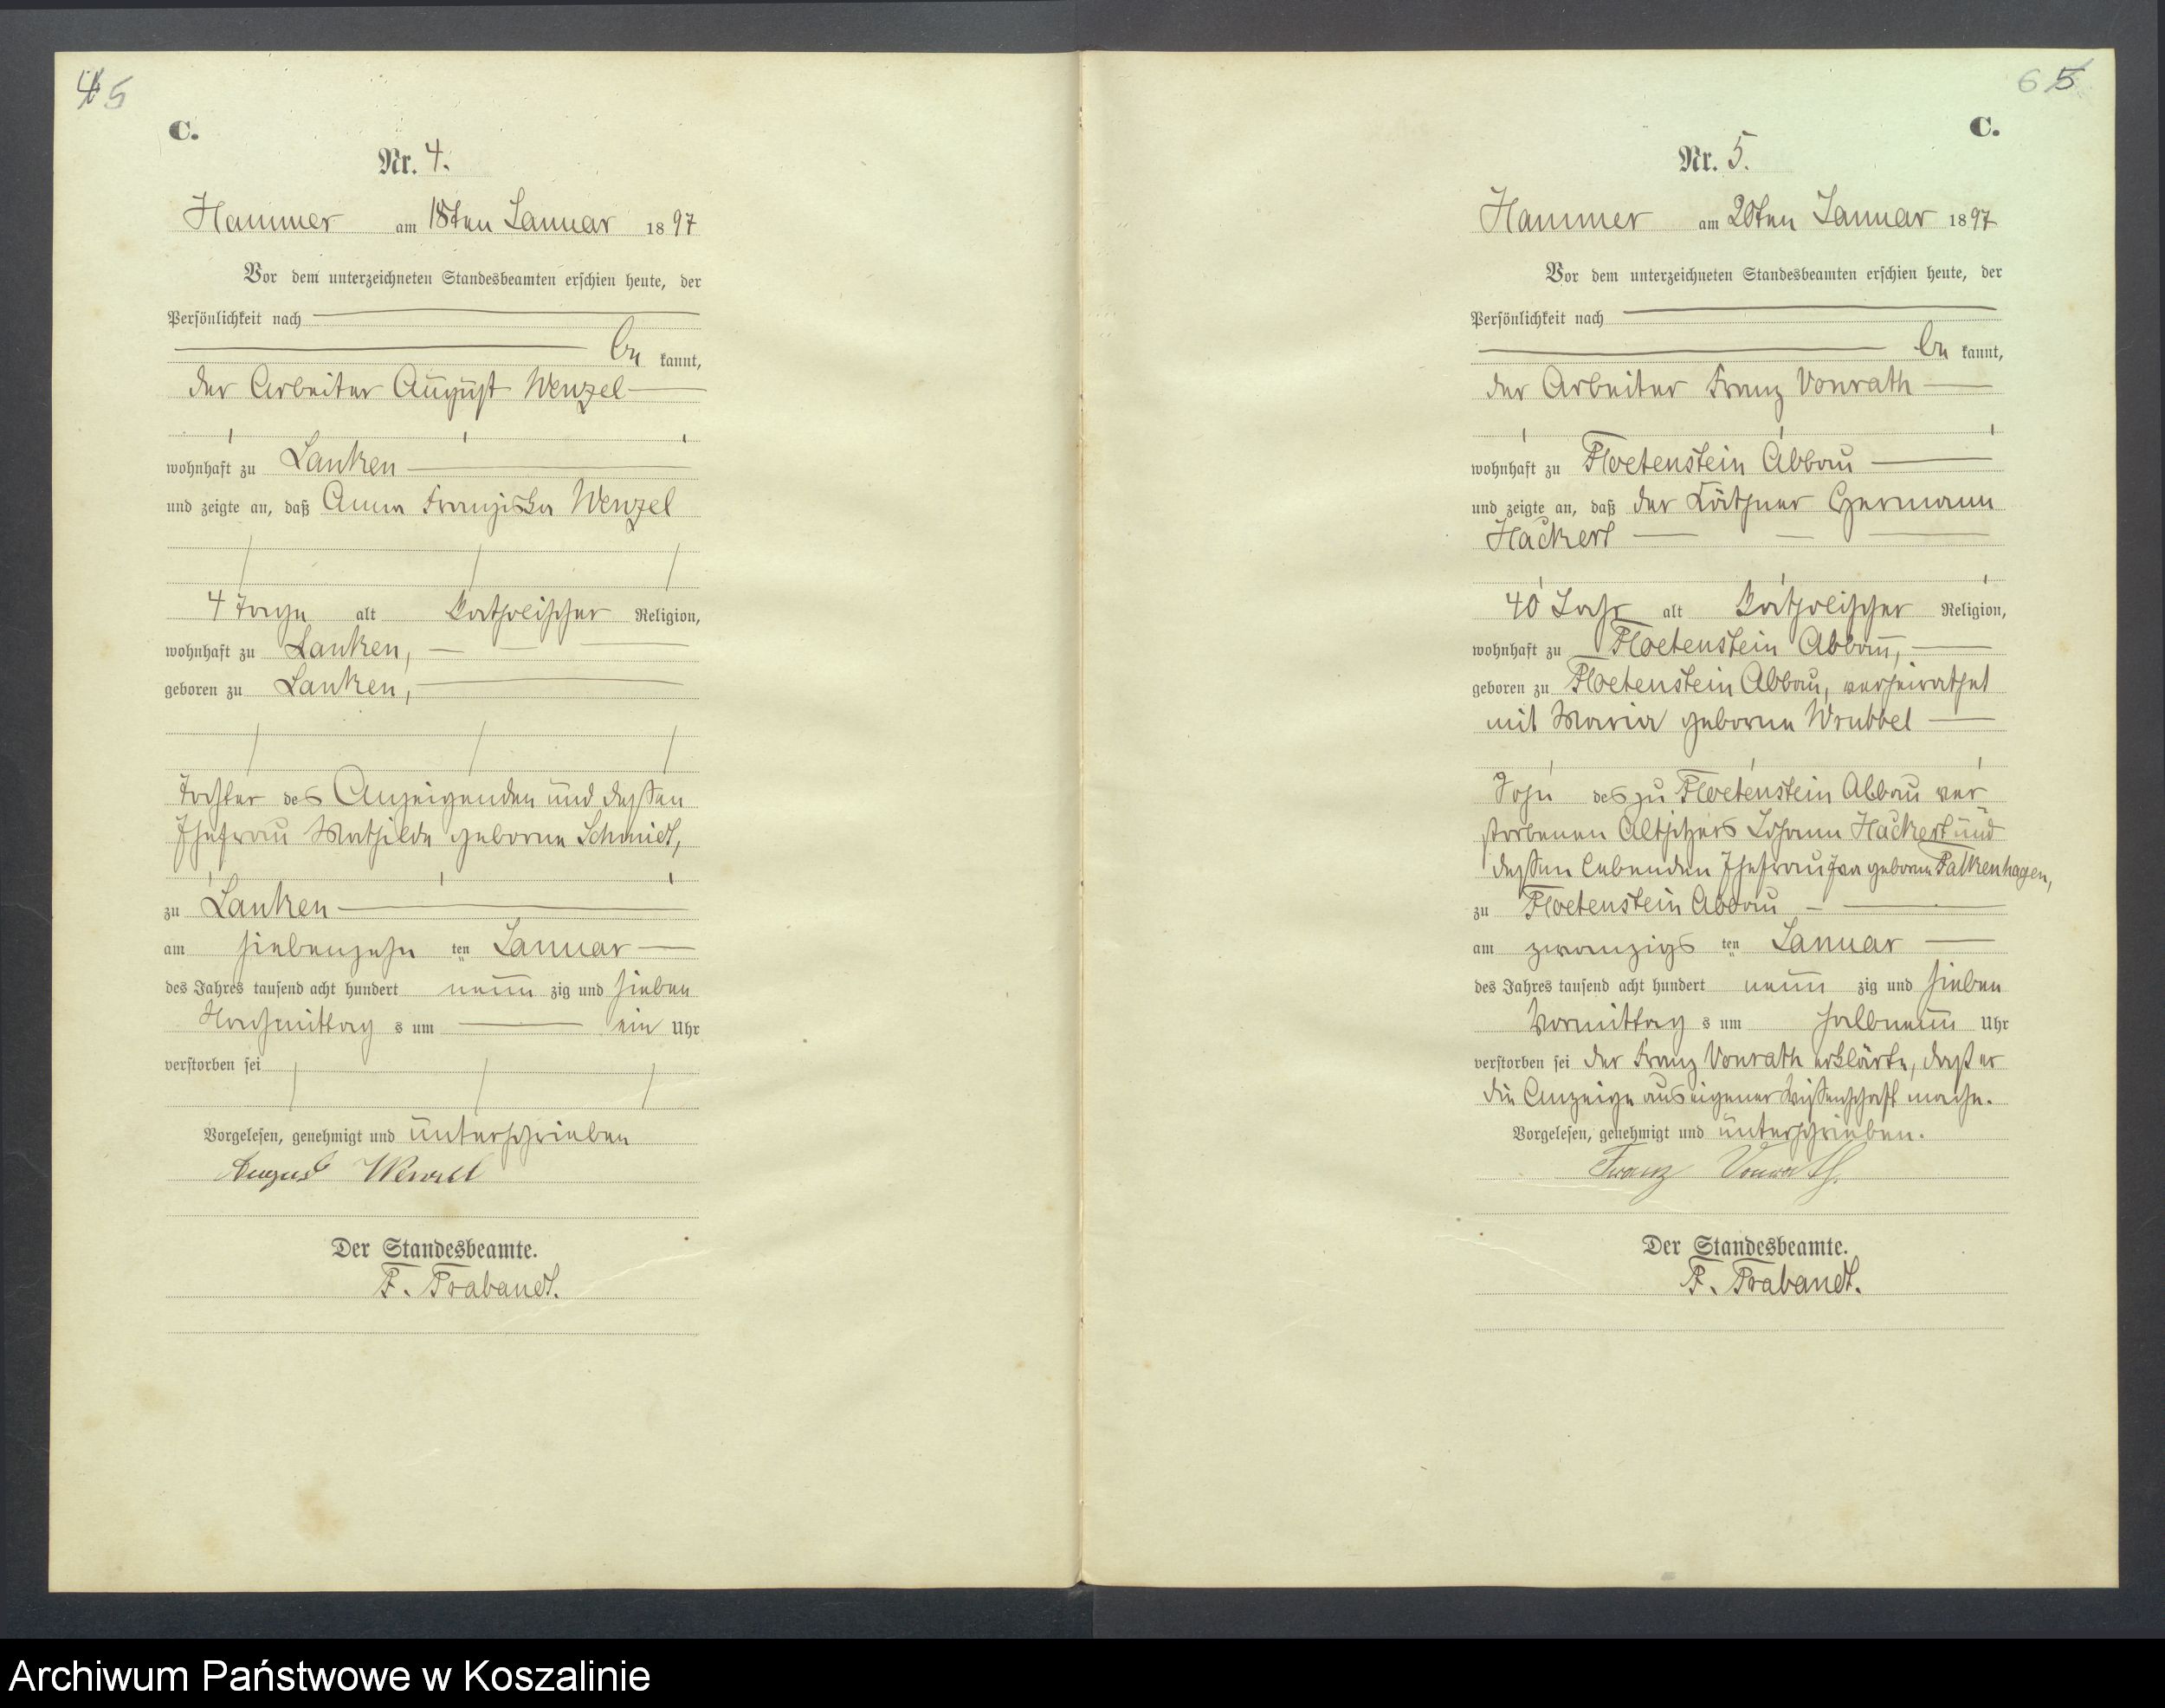 4 5
C.
Nr. 4.
Hammer am 18ten Januar 1897
Vor dem unterzeichneten Standesbeamten erschien heute, der
Persönlichkeit nach
be kannt,
der Arbeiter August Wenzel
wohnhaft zu Lanken
und zeigte an, daß Anna Franziska Wenzel
4 Tage alt katholischer Religion,
wohnhaft zu Lanken,
geboren zu Lanken,
Tochter des Anzeigenden und dessen
Ehefrau Mathilde geborne Schmidt,
zu Lanken
am siebenzehn ten Januar
des Jahres tausend acht hundert neun zig und sieben
Nachmittag s um ein Uhr
verstorben sei
Vorgelesen, genehmigt und unterschrieben
August Wenzel
Der Standesbeamte.
F. Trabandt.
6 5
C.
Nr. 5.
Hammer am 20ten Januar 1897
Vor dem unterzeichneten Standesbeamten erschien heute, der
Persönlichkeit nach
be kannt,
der Arbeiter Franz Vonrath
wohnhaft zu Floetenstein Abbau
und zeigte an, daß der Käthner Hermann
Hackert
40 Jahr alt katholischer Religion,
wohnhaft zu Floetenstein Abbau,
geboren zu Floetenstein Abbau, verheirathet
mit Maria geborne Wrubbel
Sohn des zu Floetenstein Abbau ver
storbenen Altsitzers Johann Hackert und
dessen lebenden Ehefrau Eva geborne Falkenhagen,
zu Floetenstein Abbau
am zwanzigs ten Januar
des Jahres tausend acht hundert neun zig und sieben
Vormittag s um halbneun Uhr
verstorben sei der Franz Vonrath erklärte, daß er
die Anzeige aus eigener Wissenschaft mache.
Vorgelesen, genehmigt und unterschrieben.
Franz Vonrath.
Der Standesbeamte.
F. Trabandt.
Archiwum Państwowe w Koszalinie